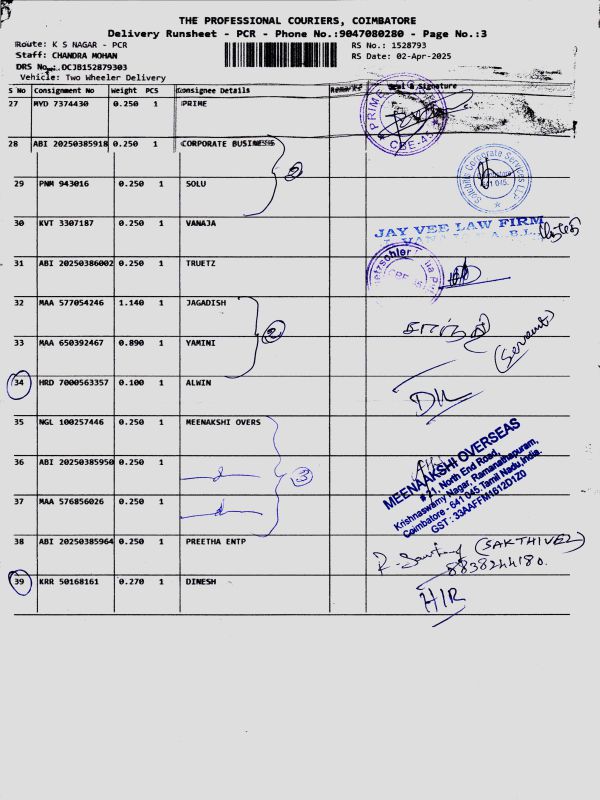 THE PROFESSIONAL COURIERS, COIMBATORE
Delivery Runsheet - PCR - Phone No.:9047080280 - Page No.:3
Route: K S NAGAR - PCR
RS No.: 1528793
Staff: CHANDRA MOHAN
RS Date: 02-Apr-2025
DRS No.:.DCJB152879303
Vehicle: Two Wheeler Delivery
S No Consignment No Weight PCS Consignee Details Remarks Seal & Signature
27 MYD 7374430 0.250 1 PRIME
PRIME
CBE-45
28 ABI 20250385918 0.250 1 CORPORATE BUSINESS
2
Corporate Services LLP
641 045.
29 PNM 943016 0.250 1 SOLU
30 KVT 3307187 0.250 1 VANAJA
JAY VEE LAW FIRM
31 ABI 20250386002 0.250 1 TRUETZ
32 MAA 577054246 1.140 1 JAGADISH
2
(Servant)
33 MAA 650392467 0.890 1 YAMINI
34 HRD 7000563357 0.100 1 ALWIN
D/L
35 NGL 100257446 0.250 1 MEENAKSHI OVERS
MEENAAKSHI OVERSEAS
# 21, North End Road,
Krishnaswamy Nagar, Ramanathapuram,
Coimbatore - 641 045. Tamil Nadu, India.
GST : 33AAFFM1612D1Z0
36 ABI 20250385950 0.250 1
3
37 MAA 576856026 0.250 1
38 ABI 20250385964 0.250 1 PREETHA ENTP
(SAKTHIVEL)
8838244180.
39 KRR 50168161 0.270 1 DINESH
H/R